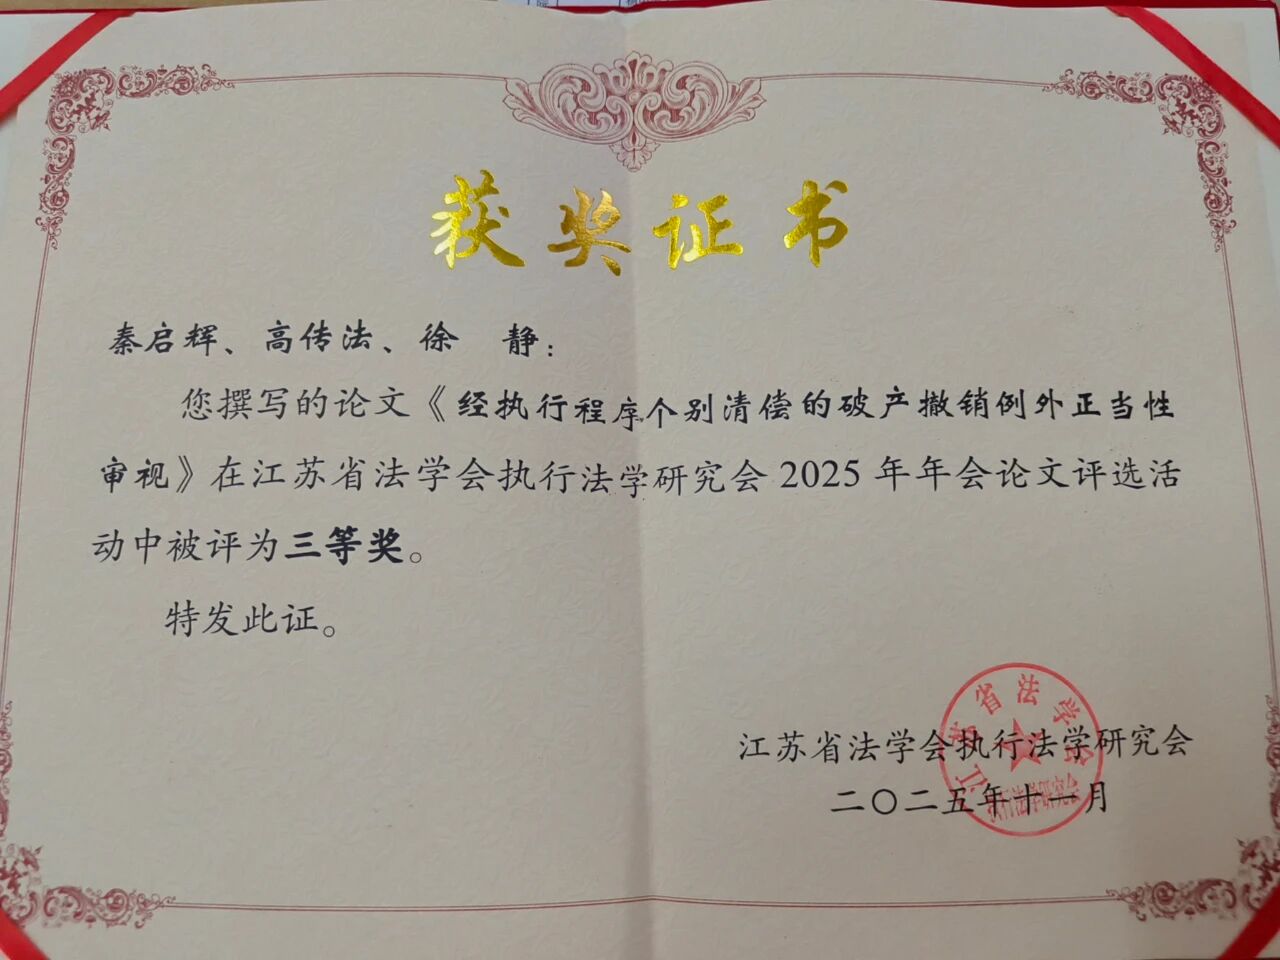 获奖证书
秦启辉、高传法、徐　静：
您撰写的论文《经执行程序个别清偿的破产撤销例外正当性
审视》在江苏省法学会执行法学研究会 2025 年年会论文评选活
动中被评为三等奖。
特发此证。
江苏省法学会执行法学研究会
二〇二五年十一月
江苏省法学会
执行法学研究会